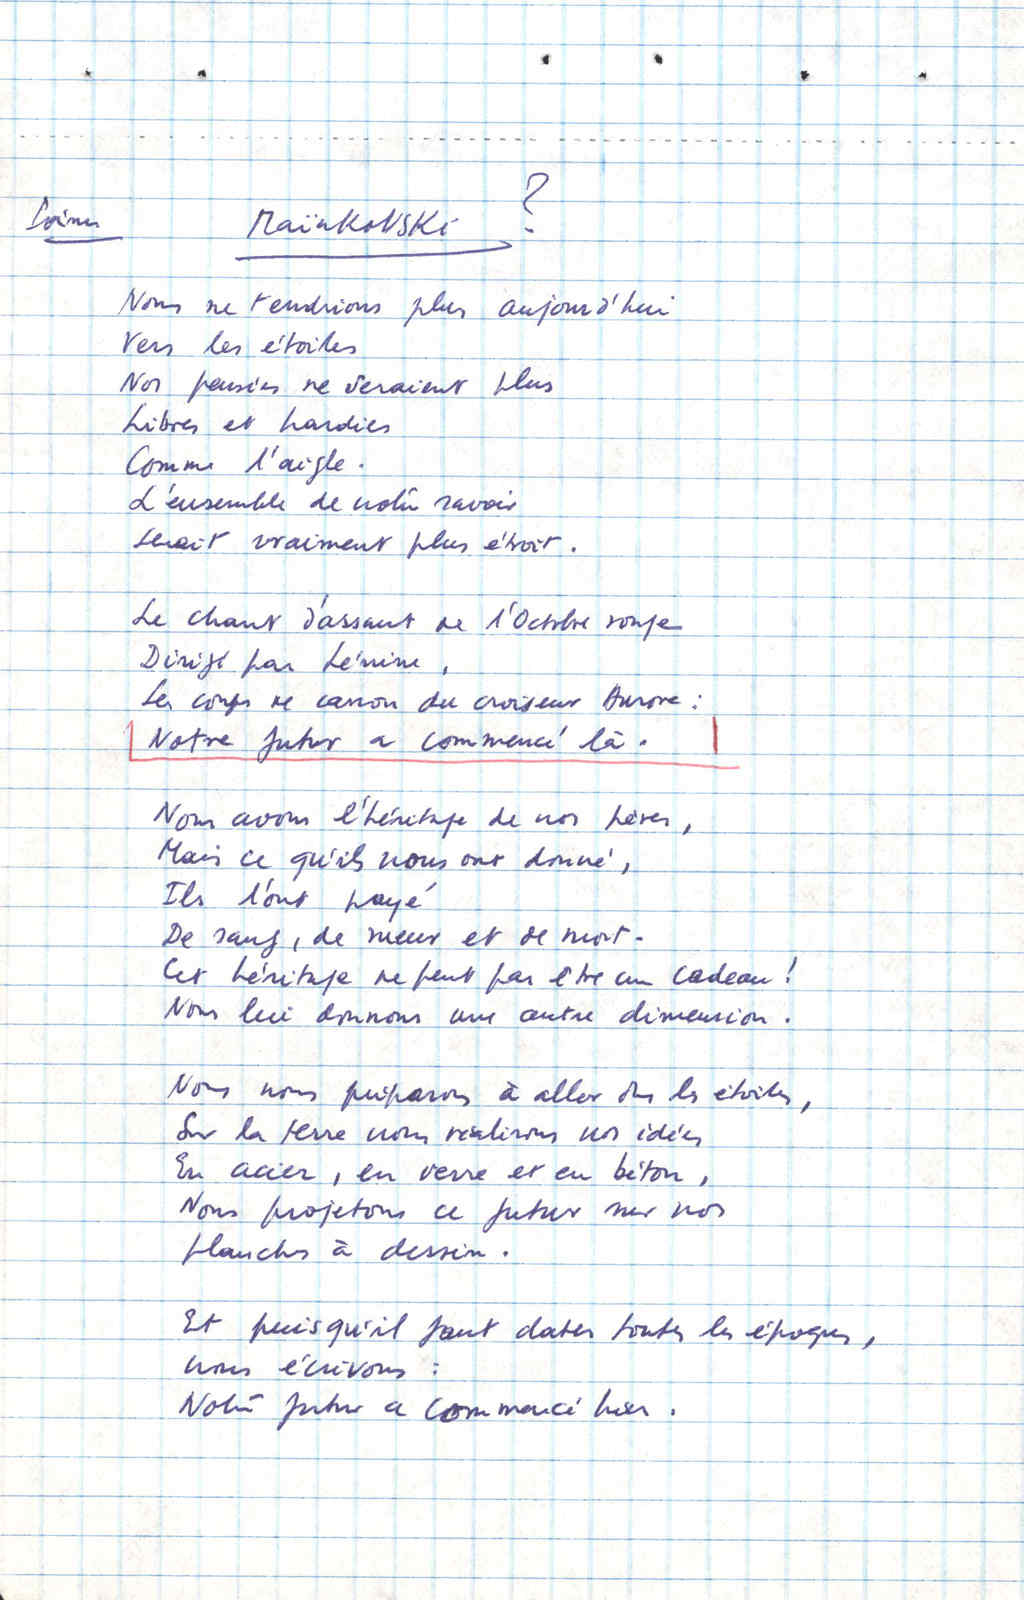 Maïakovski ?
Nous ne tendrions plus aujourd'hui
Vers les étoiles
Nos pensées ne seraient plus
Libres et hardies
Comme l'aigle.
L'ensemble de notre savoir
serait vraiment plus étroit.
Le chant d'assaut de l'Octobre rouge
Dirigé par Lénine,
Les coups de canon du croiseur Aurore :
Notre futur a commencé là.
Nous avons l'héritage de nos pères,
Mais ce qu'ils nous ont donné,
Ils l'ont payé
De sang, de sueur et de mort.
Cet héritage ne peut pas être un cadeau !
Nous lui donnons une autre dimension.
Nous nous préparons à aller ds les étoiles,
Sur la terre nous réalisons nos idées
En acier, en verre et en béton,
Nous projetons ce futur sur nos
planches à dessin.
Et puisqu'il faut dater toutes les époques,
nous écrivons :
Notre futur a commencé hier.